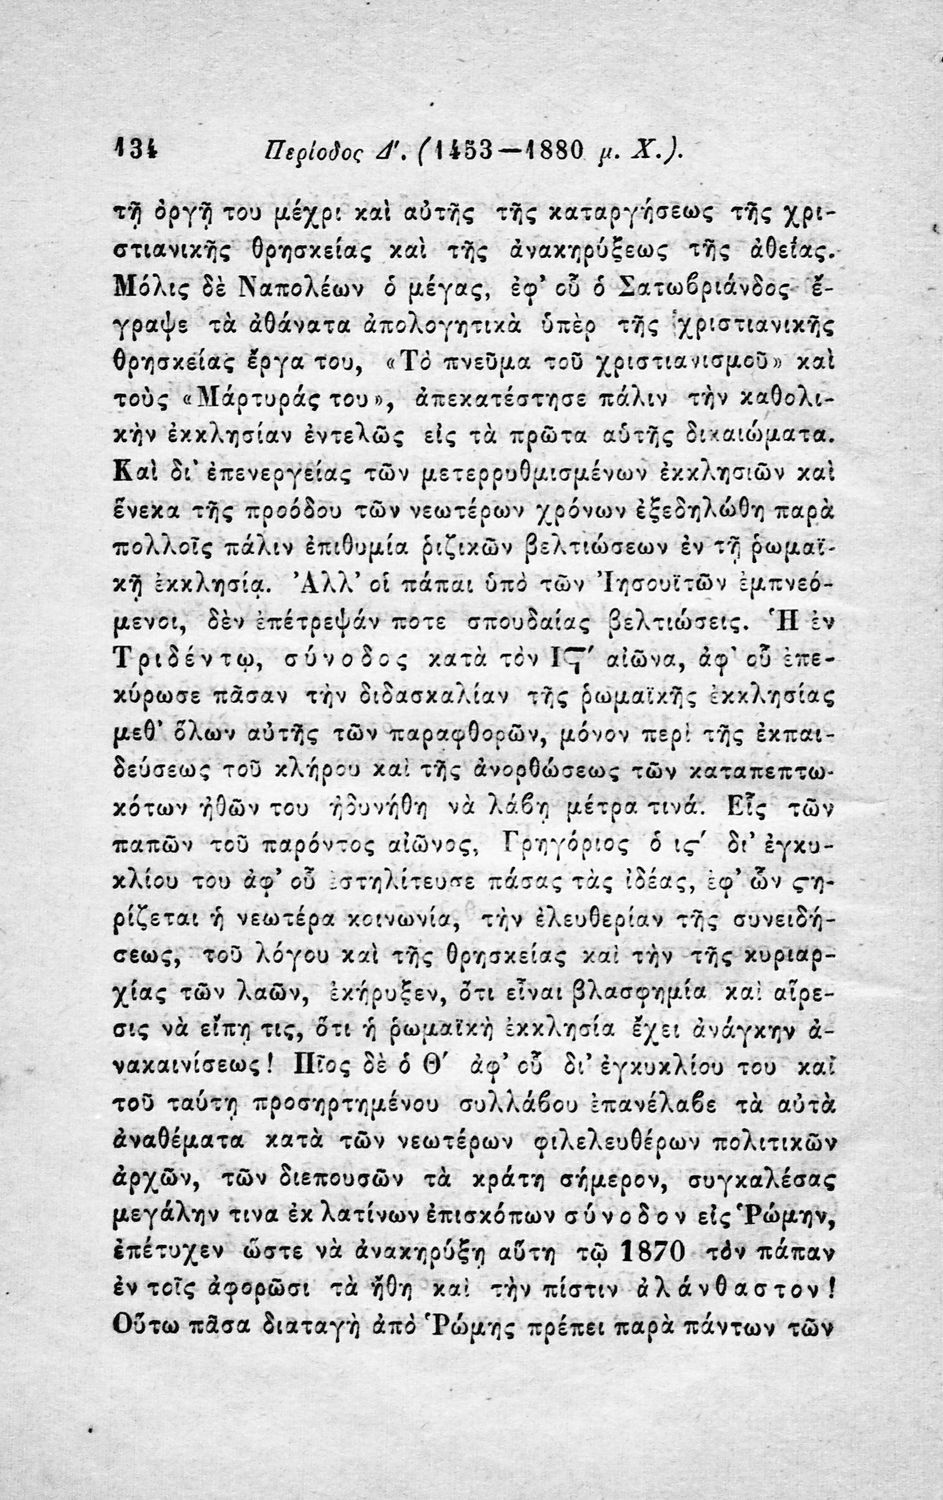 134 Περίοδος Δ'. (1453—1880 μ. Χ.).
τῇ ὀργῇ του μέχρι καὶ αὐτῆς τῆς καταργήσεως τῆς χρι-
στιανικῆς θρησκείας καὶ τῆς ἀνακηρύξεως τῆς ἀθεΐας.
Μόλις δὲ Ναπολέων ὁ μέγας, ἐφ' οὗ ὁ Σατωβριάνδος ἔ-
γραψε τὰ ἀθάνατα ἀπολογητικὰ ὑπὲρ τῆς χριστιανικῆς
θρησκείας ἔργα του, «Τὸ πνεῦμα τοῦ χριστιανισμοῦ» καὶ
τοὺς «Μάρτυράς του», ἀπεκατέστησε πάλιν τὴν καθολι-
κὴν ἐκκλησίαν ἐντελῶς εἰς τὰ πρῶτα αὑτῆς δικαιώματα.
Καὶ δι' ἐπενεργείας τῶν μετερρυθμισμένων ἐκκλησιῶν καὶ
ἕνεκα τῆς προόδου τῶν νεωτέρων χρόνων ἐξεδηλώθη παρὰ
πολλοῖς πάλιν ἐπιθυμία ῥιζικῶν βελτιώσεων ἐν τῇ ῥωμαϊ-
κῇ ἐκκλησίᾳ. Ἀλλ' οἱ πάπαι ὑπὸ τῶν Ἰησουϊτῶν ἐμπνεό-
μενοι, δὲν ἐπέτρεψάν ποτε σπουδαίας βελτιώσεις. Ἡ ἐν
Τριδέντῳ, σύνοδος κατὰ τὸν ΙϚ' αἰῶνα, ἀφ' οὗ ἐπε-
κύρωσε πᾶσαν τὴν διδασκαλίαν τῆς ῥωμαϊκῆς ἐκκλησίας
μεθ' ὅλων αὐτῆς τῶν παραφθορῶν, μόνον περὶ τῆς ἐκπαι-
δεύσεως τοῦ κλήρου καὶ τῆς ἀνορθώσεως τῶν καταπεπτω-
κότων ἠθῶν του ἠδυνήθη νὰ λάβῃ μέτρα τινά. Εἷς τῶν
παπῶν τοῦ παρόντος αἰῶνος, Γρηγόριος ὁ ις' δι' ἐγκυ-
κλίου του ἀφ' οὗ ἐστηλίτευσε πάσας τὰς ἰδέας, ἐφ' ὧν ϛη-
ρίζεται ἡ νεωτέρα κοινωνία, τὴν ἐλευθερίαν τῆς συνειδή-
σεως, τοῦ λόγου καὶ τῆς θρησκείας καὶ τὴν τῆς κυριαρ-
χίας τῶν λαῶν, ἐκήρυξεν, ὅτι εἶναι βλασφημία καὶ αἵρε-
σις νὰ εἴπῃ τις, ὅτι ἡ ῥωμαϊκὴ ἐκκλησία ἔχει ἀνάγκην ἀ-
νακαινίσεως! Πῖος δὲ ὁ Θ' ἀφ' οὗ δι' ἐγκυκλίου του καὶ
τοῦ ταύτῃ προσηρτημένου συλλάβου ἐπανέλαβε τὰ αὐτὰ
ἀναθέματα κατὰ τῶν νεωτέρων φιλελευθέρων πολιτικῶν
ἀρχῶν, τῶν διεπουσῶν τὰ κράτη σήμερον, συγκαλέσας
μεγάλην τινα ἐκ λατίνων ἐπισκόπων σύνοδον εἰς Ῥώμην,
ἐπέτυχεν ὥστε νὰ ἀνακηρύξῃ αὕτη τῷ 1870 τὸν πάπαν
ἐν τοῖς ἀφορῶσι τὰ ἤθη καὶ τὴν πίστιν ἀλάνθαστον!
Οὕτω πᾶσα διαταγὴ ἀπὸ Ῥώμης πρέπει παρὰ πάντων τῶν